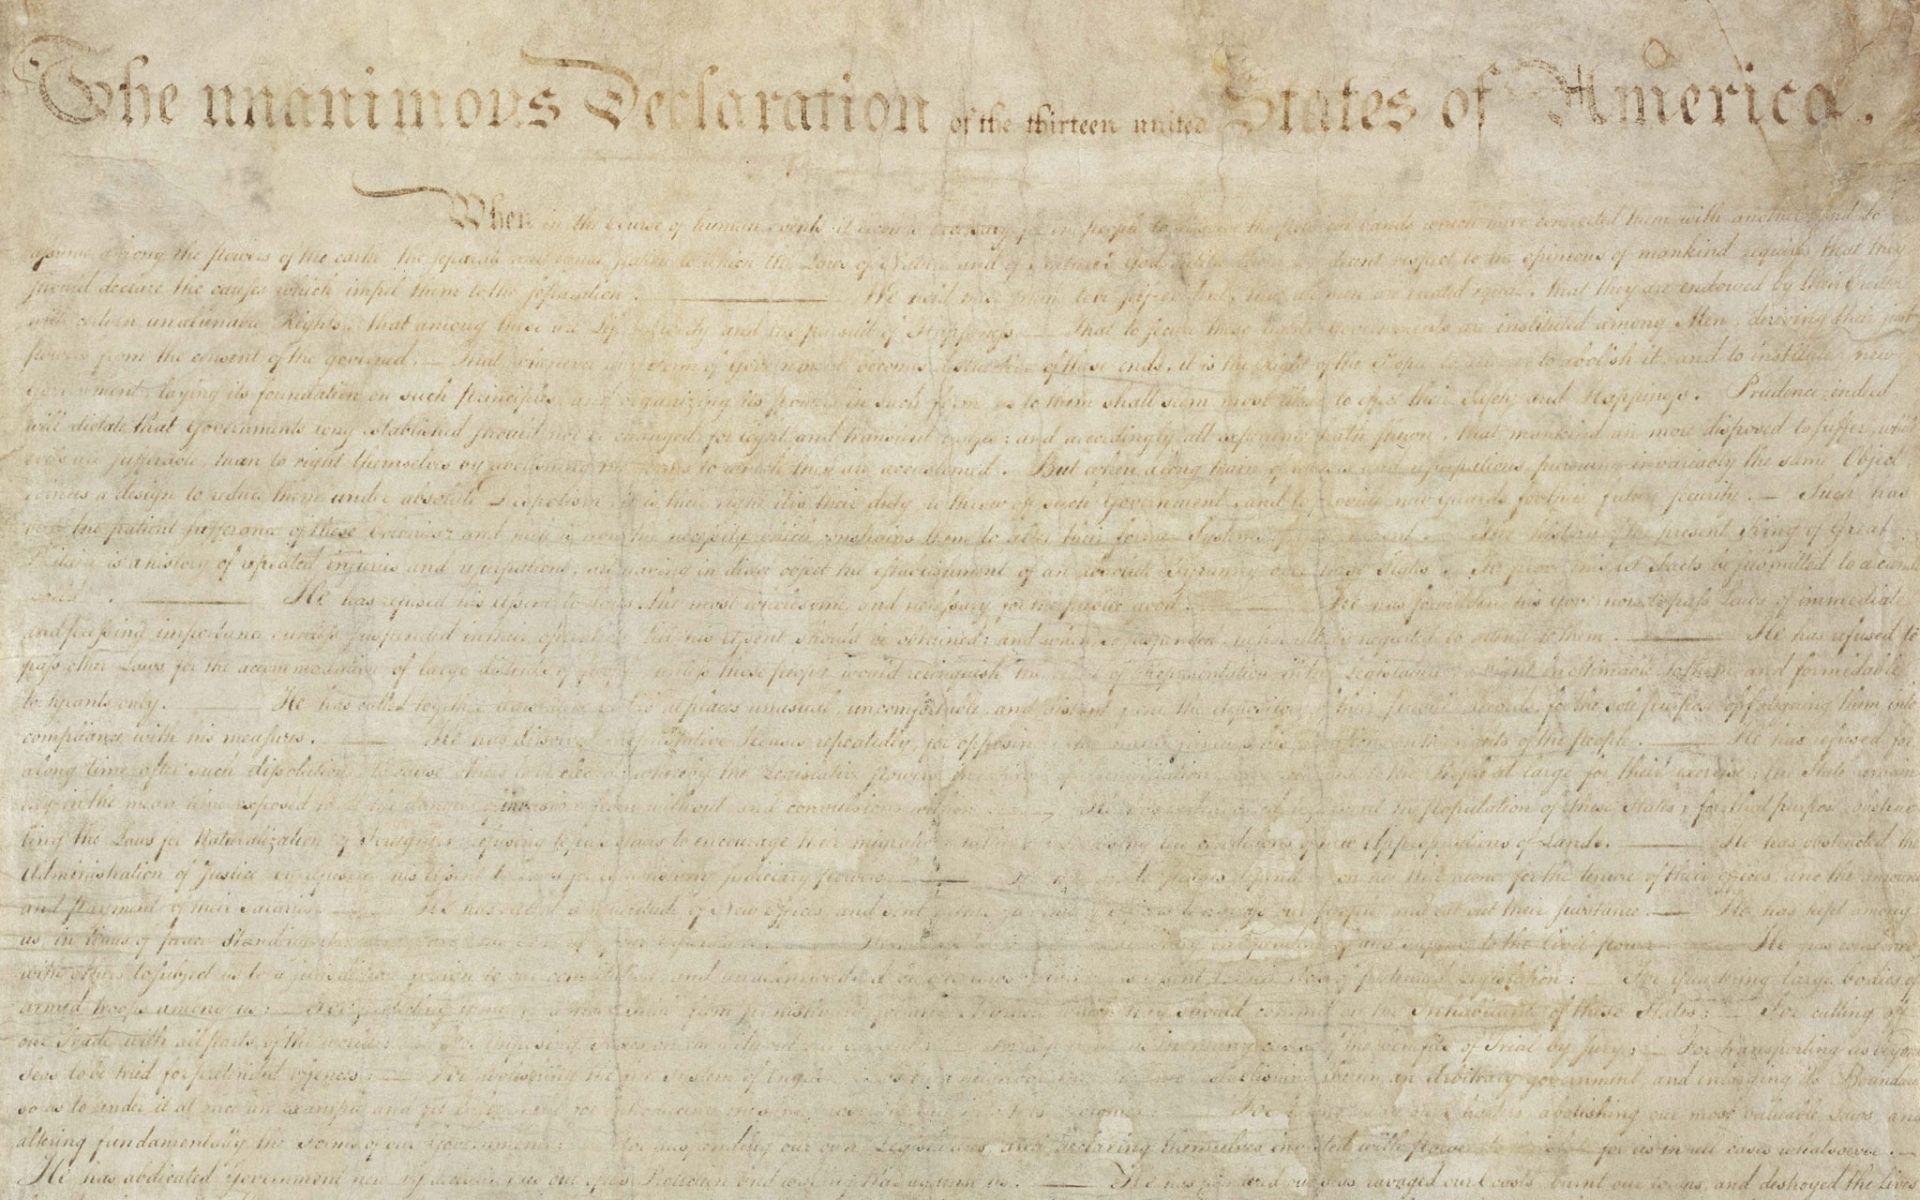 The unanimous Declaration of the thirteen united States of America.
When in the Course of human events it becomes necessary for one people to dissolve the political bands which have connected them with another, and to
assume among the powers of the earth, the separate and equal station to which the Laws of Nature and of Nature's God entitle them, a decent respect to the opinions of mankind requires that they
should declare the causes which impel them to the separation. We hold these truths to be self-evident, that all men are created equal, that they are endowed by their Creator
with certain unalienable Rights, that among these are Life, Liberty and the pursuit of Happiness. — That to secure these rights, Governments are instituted among Men, deriving their just
powers from the consent of the governed, — That whenever any Form of Government becomes destructive of these ends, it is the Right of the People to alter or to abolish it, and to institute new
Government, laying its foundation on such principles and organizing its powers in such form, as to them shall seem most likely to effect their Safety and Happiness. Prudence, indeed,
will dictate that Governments long established should not be changed for light and transient causes; and accordingly all experience hath shewn, that mankind are more disposed to suffer, while
evils are sufferable, than to right themselves by abolishing the forms to which they are accustomed. But when a long train of abuses and usurpations, pursuing invariably the same Object
evinces a design to reduce them under absolute Despotism, it is their right, it is their duty, to throw off such Government, and to provide new Guards for their future security. — Such has
been the patient sufferance of these Colonies; and such is now the necessity which constrains them to alter their former Systems of Government. The history of the present King of Great
Britain is a history of repeated injuries and usurpations, all having in direct object the establishment of an absolute Tyranny over these States. To prove this, let Facts be submitted to a candid
world. He has refused his Assent to Laws, the most wholesome and necessary for the public good. He has forbidden his Governors to pass Laws of immediate
and pressing importance, unless suspended in their operation till his Assent should be obtained; and when so suspended, he has utterly neglected to attend to them. He has refused to
pass other Laws for the accommodation of large districts of people, unless those people would relinquish the right of Representation in the Legislature, a right inestimable to them and formidable
to tyrants only. He has called together legislative bodies at places unusual, uncomfortable, and distant from the depository of their public Records, for the sole purpose of fatiguing them into
compliance with his measures. He has dissolved Representative Houses repeatedly, for opposing with manly firmness his invasions on the rights of the people. He has refused for
a long time, after such dissolutions, to cause others to be elected; whereby the Legislative powers, incapable of Annihilation, have returned to the People at large for their exercise; the State remain
ing in the mean time exposed to all the dangers of invasion from without, and convulsions within. He has endeavoured to prevent the population of these States; for that purpose obstruc
ting the Laws for Naturalization of Foreigners; refusing to pass others to encourage their migrations hither, and raising the conditions of new Appropriations of Lands. He has obstructed the
Administration of Justice, by refusing his Assent to Laws for establishing Judiciary powers. He has made Judges dependent on his Will alone, for the tenure of their offices, and the amount
and payment of their salaries. He has erected a multitude of New Offices, and sent hither swarms of Officers to harrass our people, and eat out their substance. He has kept among
us, in times of peace, Standing Armies without the Consent of our legislatures. He has affected to render the Military independent of and superior to the Civil power. He has combined
with others to subject us to a jurisdiction foreign to our constitution, and unacknowledged by our laws; giving his Assent to their Acts of pretended Legislation: For Quartering large bodies of
armed troops among us: For protecting them, by a mock Trial, from punishment for any Murders which they should commit on the Inhabitants of these States: For cutting off
our Trade with all parts of the world: For imposing Taxes on us without our Consent: For depriving us in many cases, of the benefits of Trial by Jury: For transporting us beyond
Seas to be tried for pretended offences: For abolishing the free System of English Laws in a neighbouring Province, establishing therein an Arbitrary government, and enlarging its Boundaries
so as to render it at once an example and fit instrument for introducing the same absolute rule into these Colonies: For taking away our Charters, abolishing our most valuable Laws, and
altering fundamentally the Forms of our Governments: For suspending our own Legislatures, and declaring themselves invested with power to legislate for us in all cases whatsoever. —
He has abdicated Government here, by declaring us out of his Protection and waging War against us. He has plundered our seas, ravaged our Coasts, burnt our towns, and destroyed the Lives